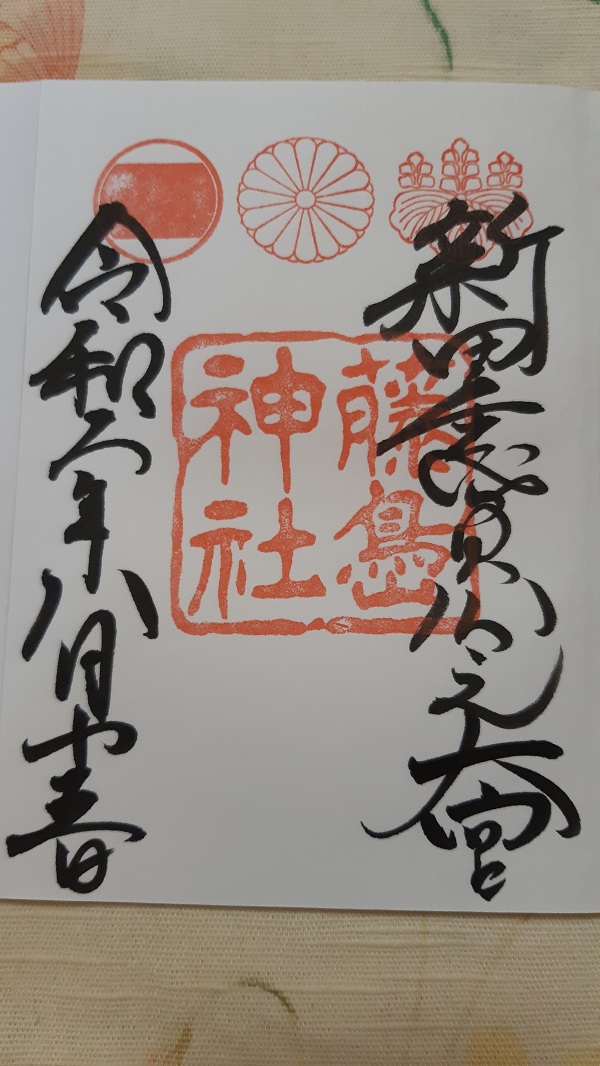 新田義貞公之大宮
藤島
神社
令和二年八月